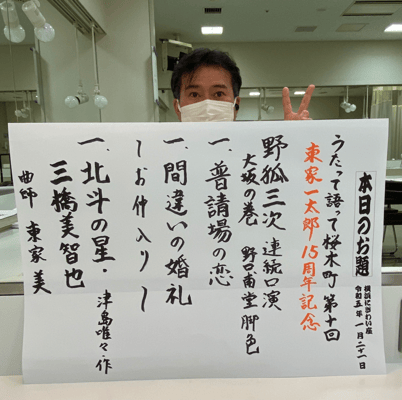 本日のお題
横浜にぎわい座
令和五年 一月二十一日
うたって語って桜木町 第十回
東家一太郎15周年記念
野狐三次 連続口演
大坂の巻 野口甫堂 脚色
一、普請場の恋
一、間違いの婚礼
〜お仲入り〜
一、北斗の星・
三橋美智也
津島唯々・作
曲師 東家 美